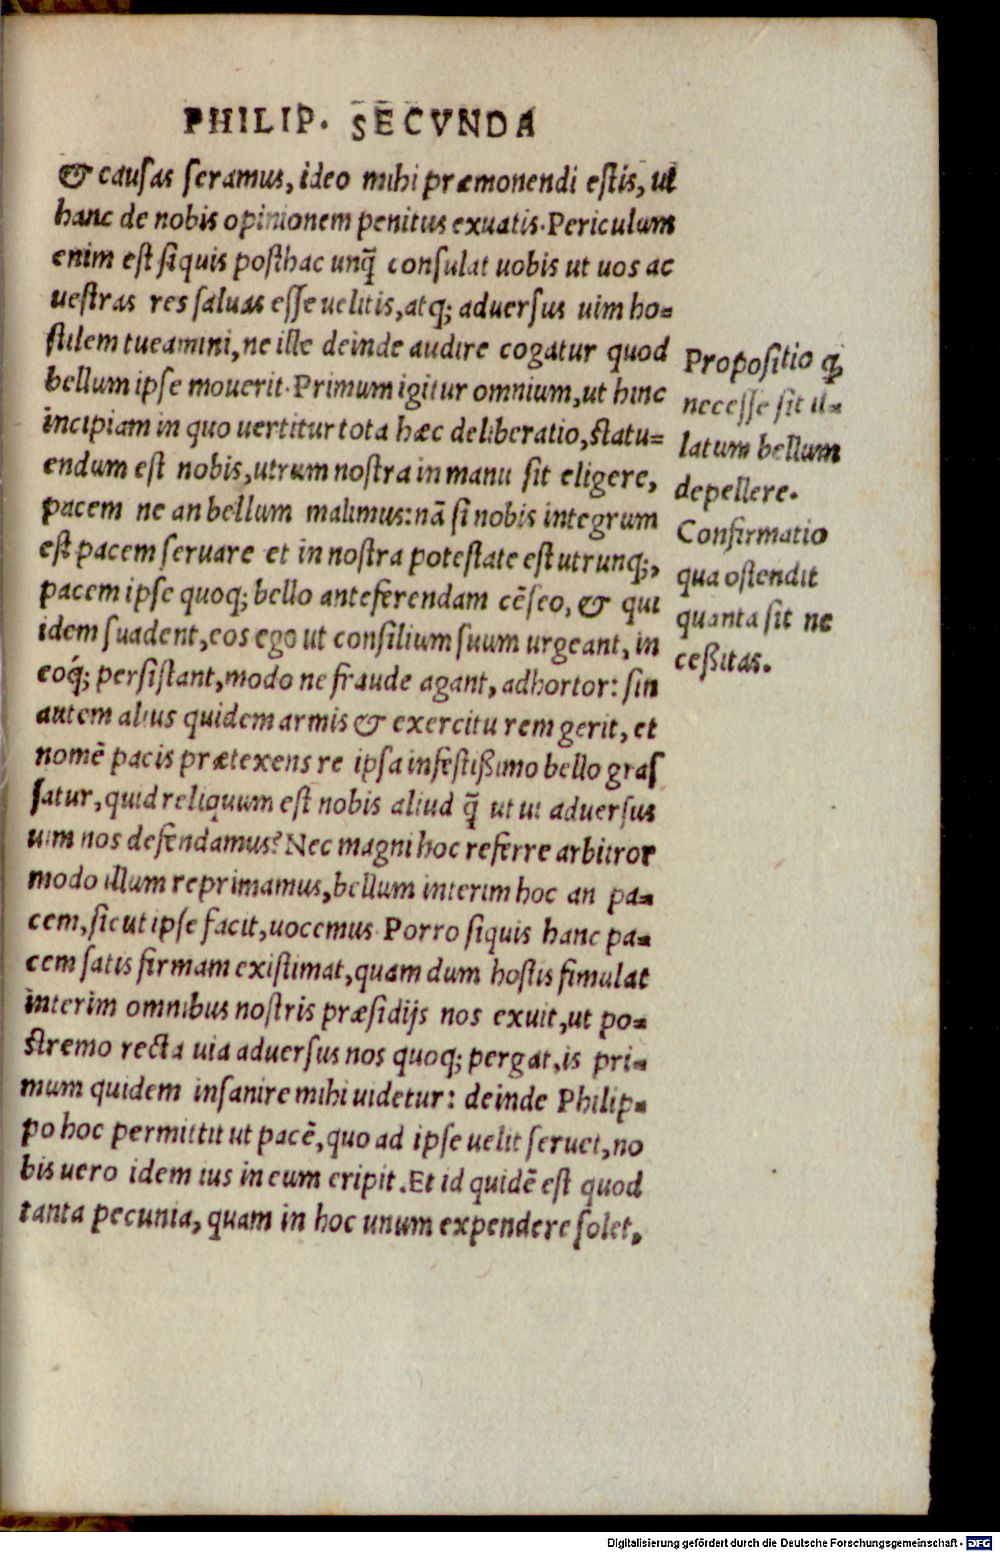 PHILIP. SECVNDA
& causas seramus, ideo mihi præmonendi estis, ut
hanc de nobis opinionem penitus exuatis. Periculum
enim est siquis posthac unq̃ consulat uobis ut uos ac
uestras res saluas esse uelitis, atq; aduersus uim ho=
stilem tueamini, ne ille deinde audire cogatur quod
bellum ipse mouerit. Primum igitur omnium, ut hinc
incipiam in quo uertitur tota hæc deliberatio, statu=
endum est nobis, utrum nostra in manu sit eligere,
pacem ne an bellum malimus: nã si nobis integrum
est pacem seruare et in nostra potestate est utrunq;,
pacem ipse quoq; bello anteferendam cẽseo, & qui
idem suadent, eos ego ut consilium suum urgeant, in
eoq́; persistant, modo ne fraude agant, adhortor: sin
autem alius quidem armis & exercitu rem gerit, et
nomẽ pacis prætexens re ipsa infestißimo bello gras
satur, quid reliquum est nobis aliud q̃ ut ui aduersus
uim nos defendamus? Nec magni hoc referre arbitror
modo illum reprimamus, bellum interim hoc an pa=
cem, sicut ipse facit, uocemus. Porro siquis hanc pa=
cem satis firmam existimat, quam dum hostis simulat
interim omnibus nostris præsidijs nos exuit, ut po=
stremo recta uia aduersus nos quoq; pergat, is pri=
mum quidem insanire mihi uidetur: deinde Philip=
po hoc permittit ut pacẽ, quo ad ipse uelit seruet, no
bis uero idem ius in eum eripit. Et id quidẽ est quod
tanta pecunia, quam in hoc unum expendere solet,
Propositio q;
necesse sit il=
latum bellum
depellere.
Confirmatio
qua ostendit
quanta sit ne
ceßitas.
Digitalisierung gefördert durch die Deutsche Forschungsgemeinschaft - DFG